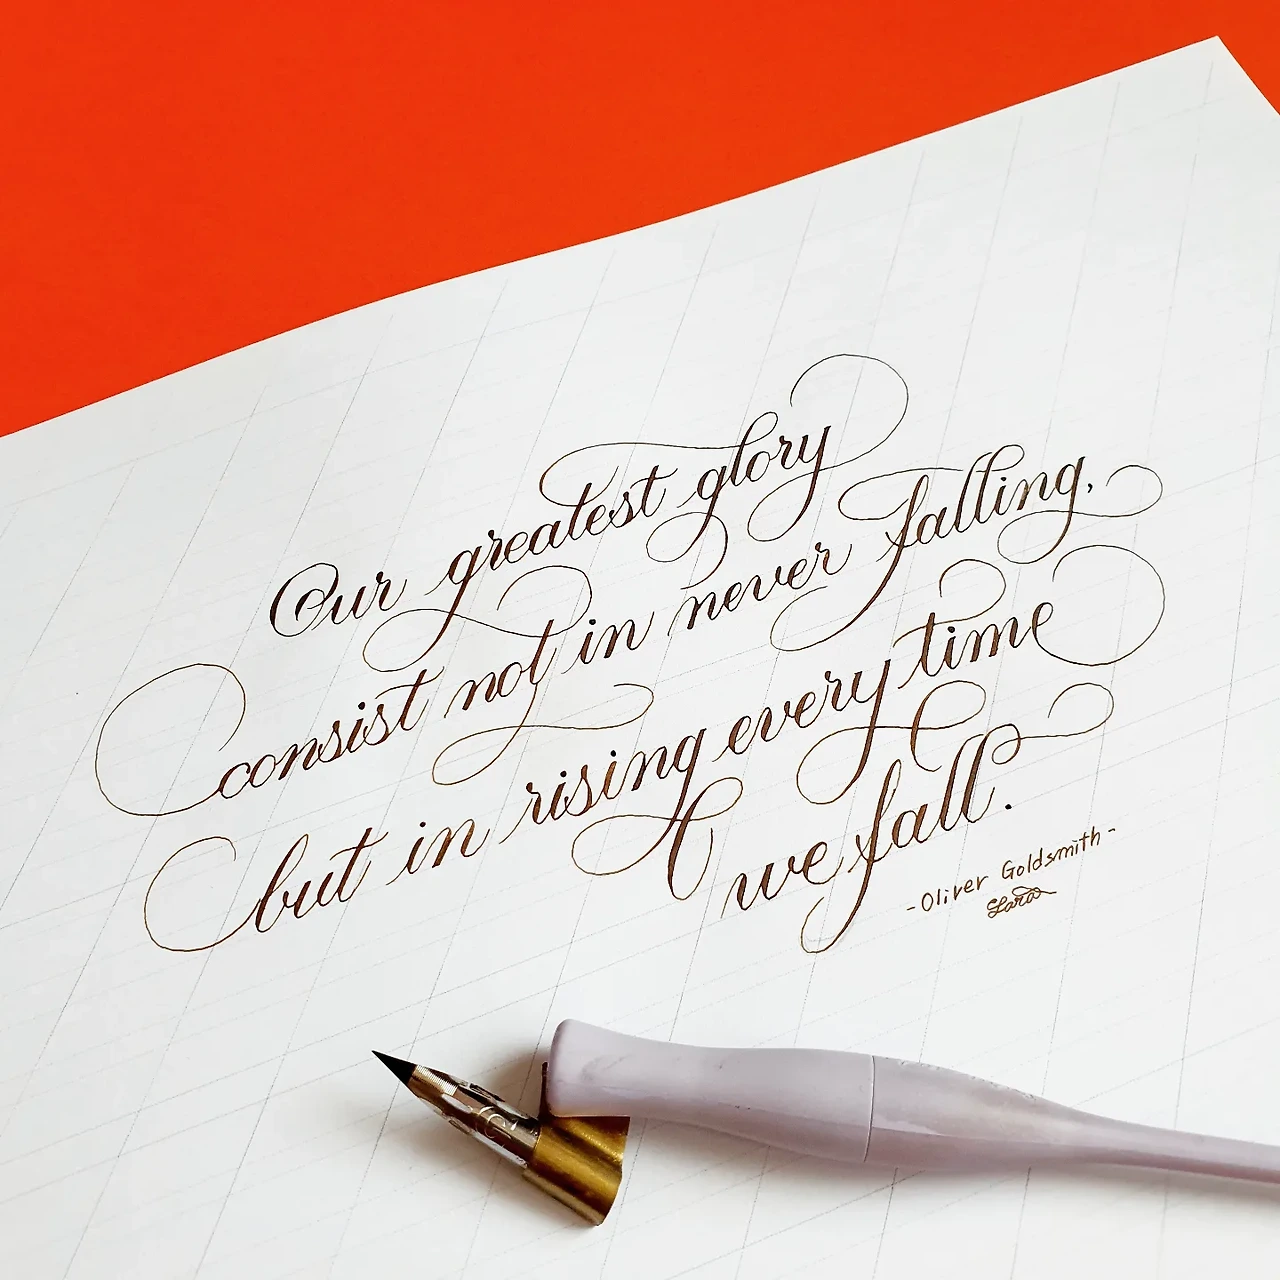 Our greatest glory
consist not in never falling,
but in rising every time
we fall.
-Oliver Goldsmith-
Lara